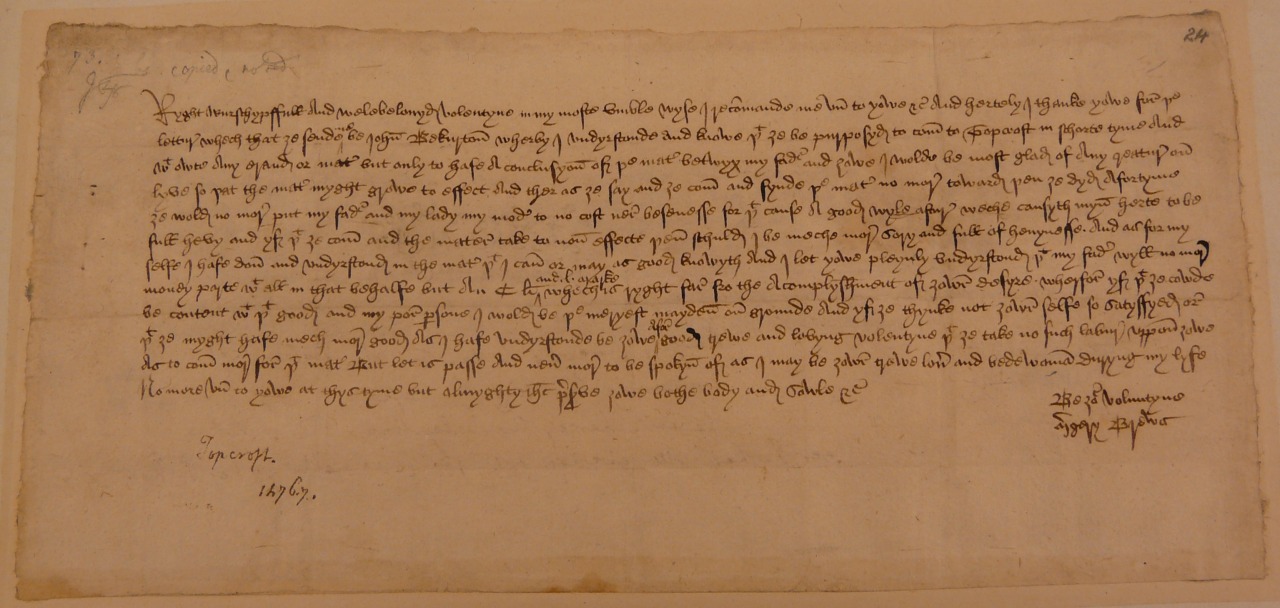 24
copied, noted
Ryght wurschypffull and welebelovyd Volentyne in my moste umble wyse I recommande me un to yowe &c And hertely I thanke yowe for þe
lettur whech that ze sende me be John Bekurton wherby I undyrstonde and knowe þt ze be purposyd to com to Topcroft in schorte tyme And
wt owte any erand or mater but only to hafe a conclusyon of þe mater betwyx my fadr and zowe I wolde be most glad of any creatur on
lyve so þat the mater myght growe to effect And ther as ze say and ze com and fynde þe mater no mor toward þen ze dyd afortyme
ze wold no mor put my fadr and my lady my modr to no cost ner besenesse for þt cause a good wyle aftur weche causyth myn herte to be
full hevy and yf þt ze com and the matter take to non effecte þen schuld I be meche mor sory and full of hevynesse. And as for my
selfe I hafe don and undyrstond in the mater þt I can or may as good knowyth And I let yowe pleynly undyrstond þt my fadr wyll no mor
money parte wt all in that behalfe but an C li and l. marke whech is ryght far fro the acomplyshment of zowr desyre. wherfor yf þt ze cowde
be content wt þt good and my por persone I wold be þe meryest mayden on grounde And yf ze thynke not zowr selfe so satysfyed or
þt ze myght hafe mech mor good as I hafe undyrstonde be zowe afor good trewe and lovyng volentyne þt ze take no such labur uppon zowe
As to com mor for þt mater But let is passe And never mor to be spokyn of as I may be zowr trewe lover and bedewoman duryng my lyfe
No more un to yowe at thys tyme but almyghty Jhc preserve zowe bothe body and sawle &c
Be zor Voluntyne
Mergery Brews
Topcroft.
1476.7.